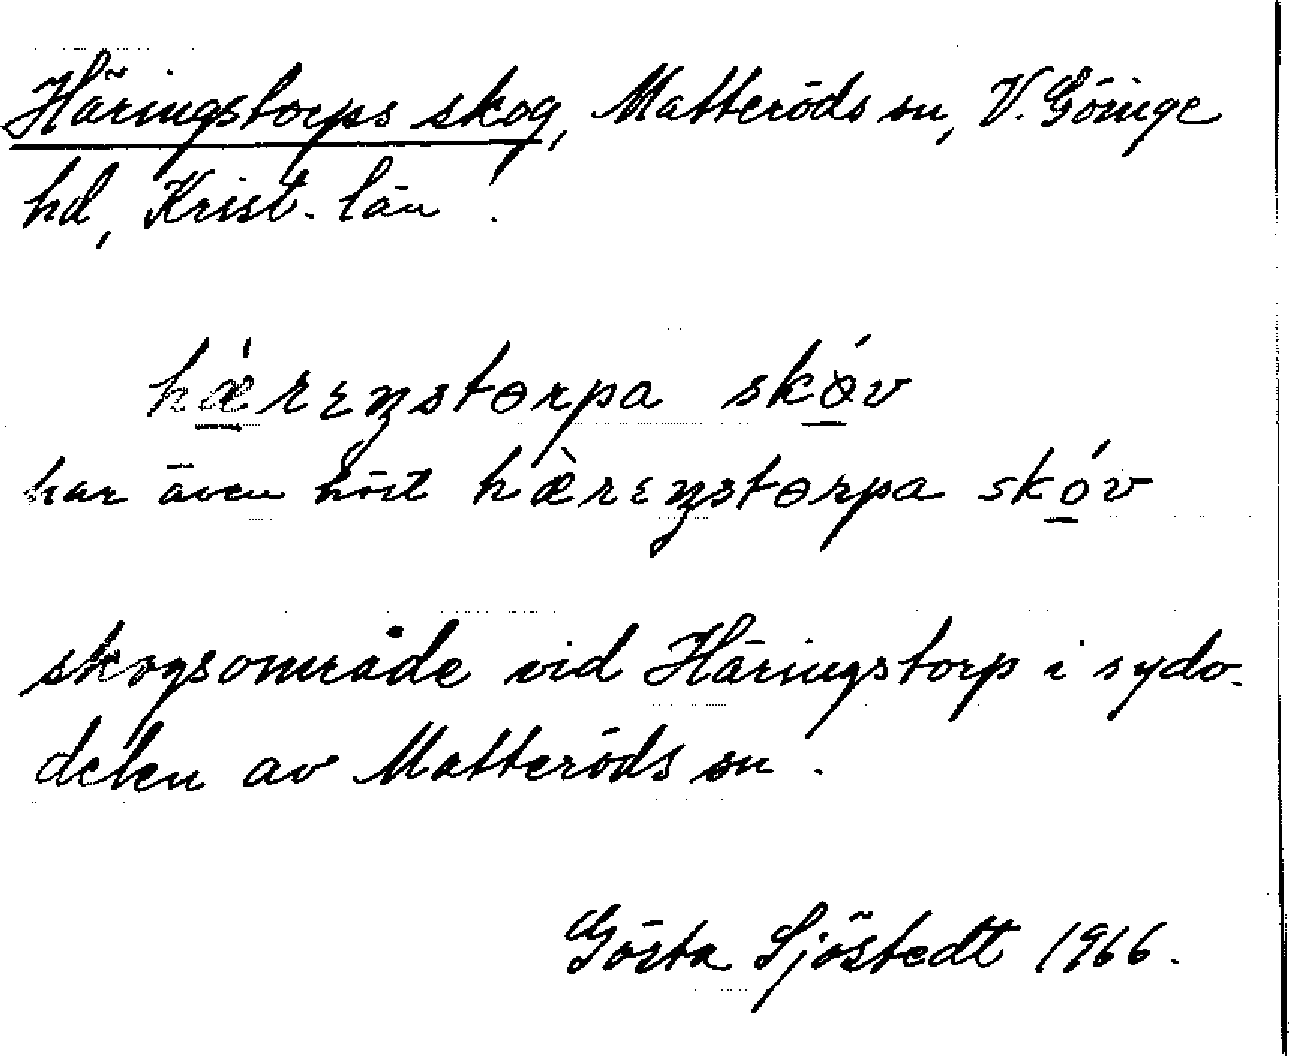 Häringstorps skog, Matteröds sn, V. Göinge
hd, Krist. län.
hæ̀rɛŋstɵrpa skɵ́v
har även hört hæ̀rɛŋstɵrpa skóv
skogsområde vid Häringstorp i sydo-
delen av Matteröds sn.
Gösta Sjöstedt 1966.